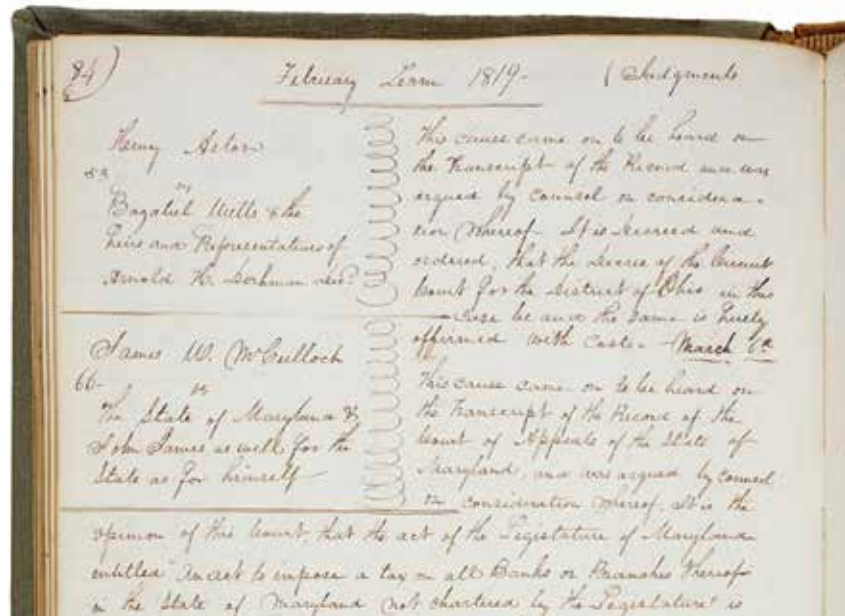 84)
February Term 1819-
( Judgments
Henry Astor
vs
Bazaliel Wells & the
Heirs and Representatives of
Arnold H. Dorhman decd
This cause came on to be heard on
the Transcript of the Record and was
argued by counsel on considera-
tion whereof. It is decreed and
ordered, that the decree of the Circuit
Court for the District of Ohio in this
case be and the same is hereby
affirmed with costs. - March 6th
James W. McCulloch
66-
vs
The State of Maryland &
John James as well for the
State as for himself
This cause came on to be heard on
the Transcript of the Record of the
Court of Appeals of the State of
Maryland, and was argued by counsel
on consideration whereof. It is the
opinion of this Court, that the act of the Legislature of Maryland
entitled "An act to impose a tax on all Banks or Branches thereof
in the State of Maryland not chartered by the Legislature" is